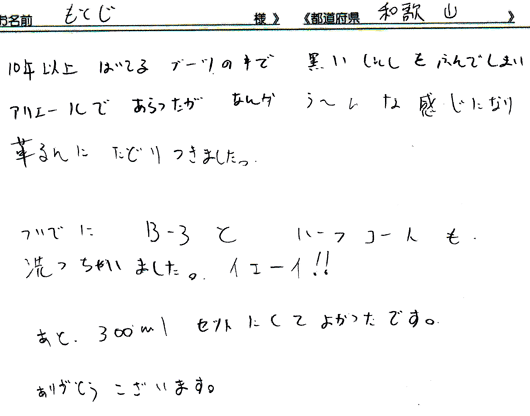 お名前 もとじ 様》 《都道府県 和歌山 》
10年以上 はいてる ブーツの中で 黒いしんしをふんでしまい
アリエールで あらったが なんか う〜んな感じになり
革るんに たどりつきましたっ.
ついでに B-3 と ハーフコートも.
洗っちゃいました。イエーイ!!
あと. 300ml セットにしてよかったです。
ありがとうございます。